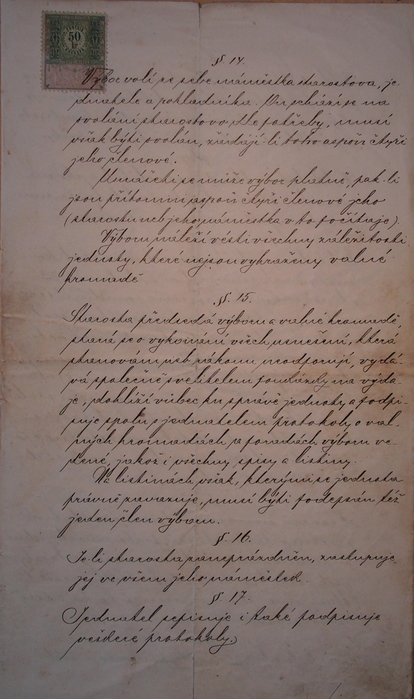 50
§ 14.
Výbor volí ze sebe náměstka starostova, je-
dnatele a pokladníka. On schází se na
svolání starostovo dle potřeby, musí
však býti svolán, žádají-li toho aspoň čtyři
jeho členové.
Unášeti se může výbor platně, jak-li
jsou přítomni aspoň čtyři členové jeho
(starostu neb jeho náměstka v to počítaje).
Výboru náleží vésti všechny záležitosti
jednoty, které nejsou vyhraženy valné
hromadě.
§. 15.
Starosta předsedá výboru a valné hromadě,
stará se o vykonání všech usnesení, která
stanovám neb zákonu neodporují, vydá-
vá společně s velitelem na výda-
je, dohlíží vůbec ku správě jednoty a podpi-
suje spolu s jednatelem protokoly o val-
ných hromadách a poradách výboru ve-
dené, jakož i všechny spisy a listiny.
Na listinách však, kterými se jednota
právně zavazuje, musí býti podepsán též
jeden člen výboru.
§. 16.
Je-li starosta zaneprázdněn, zastupuje
jej ve všem jeho náměstek.
§ 17.
Jednatel sepisuje i také podpisuje
veškeré protokoly,